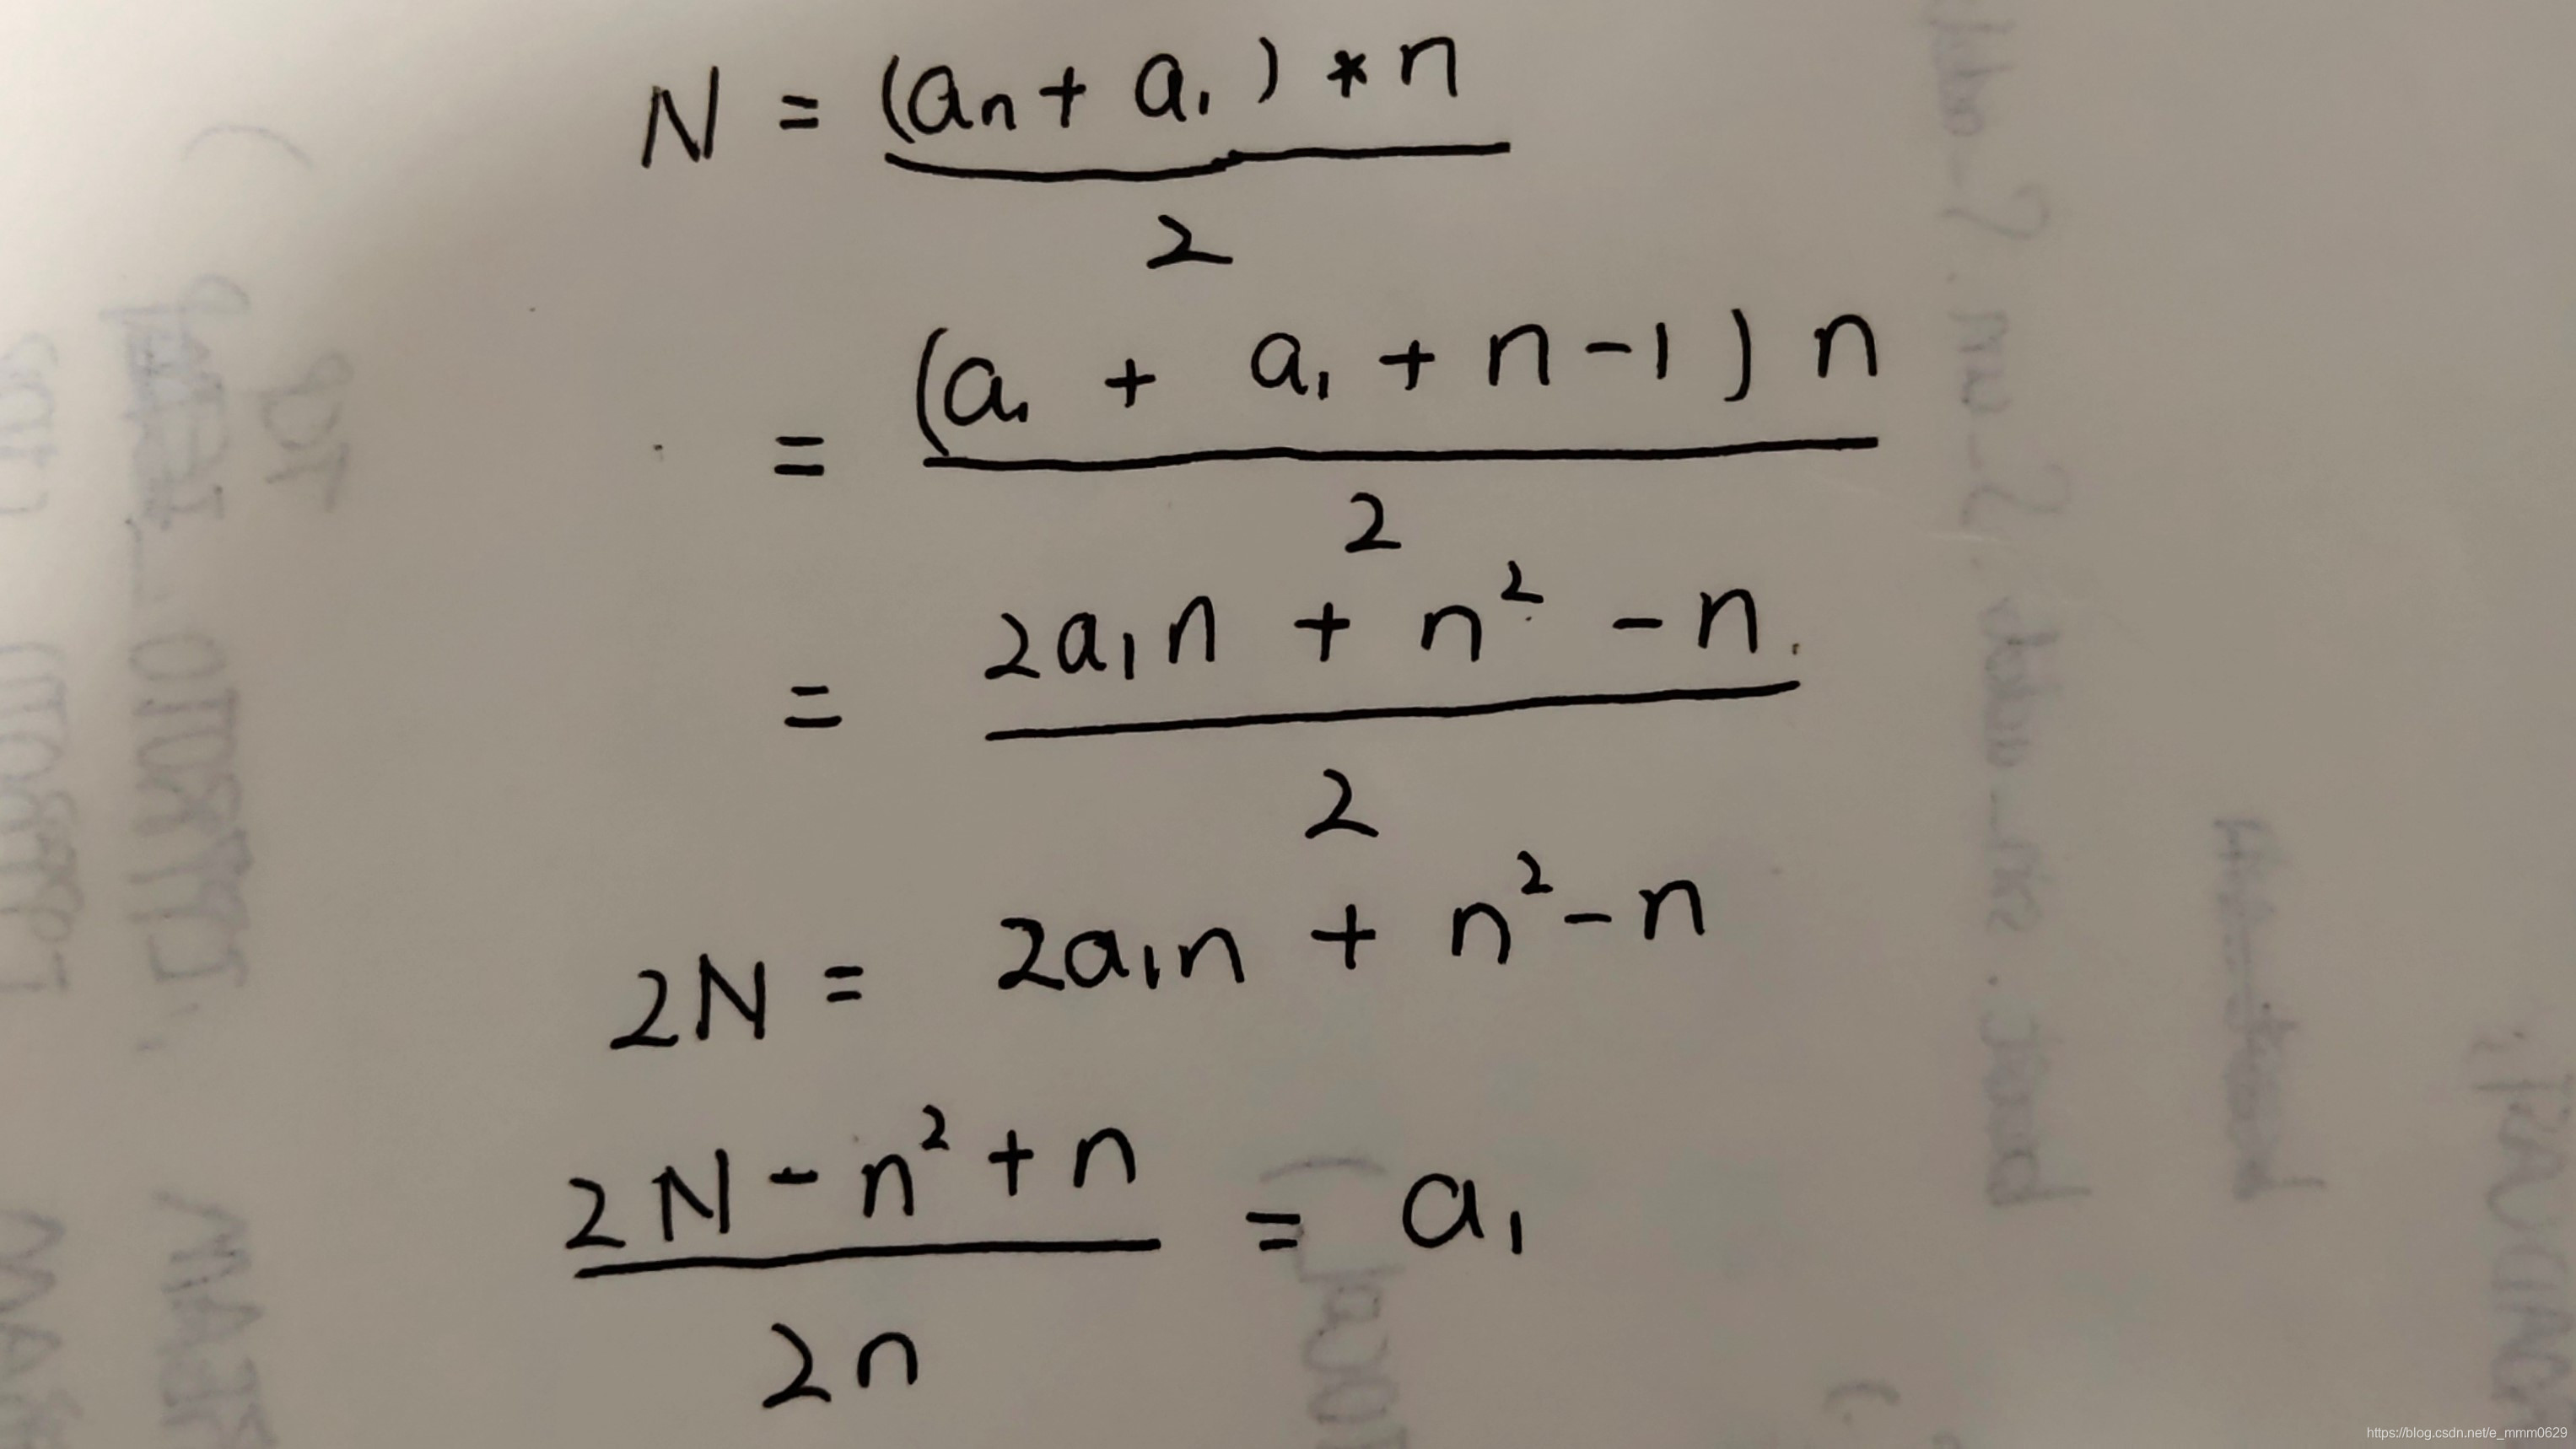 N = (an + a1) * n
2
= (a1 + a1 + n - 1) n
2
= 2a1n + n² - n
2
2N = 2a1n + n² - n
2N - n² + n = a1
2n
https://blog.csdn.net/e_mmm0629